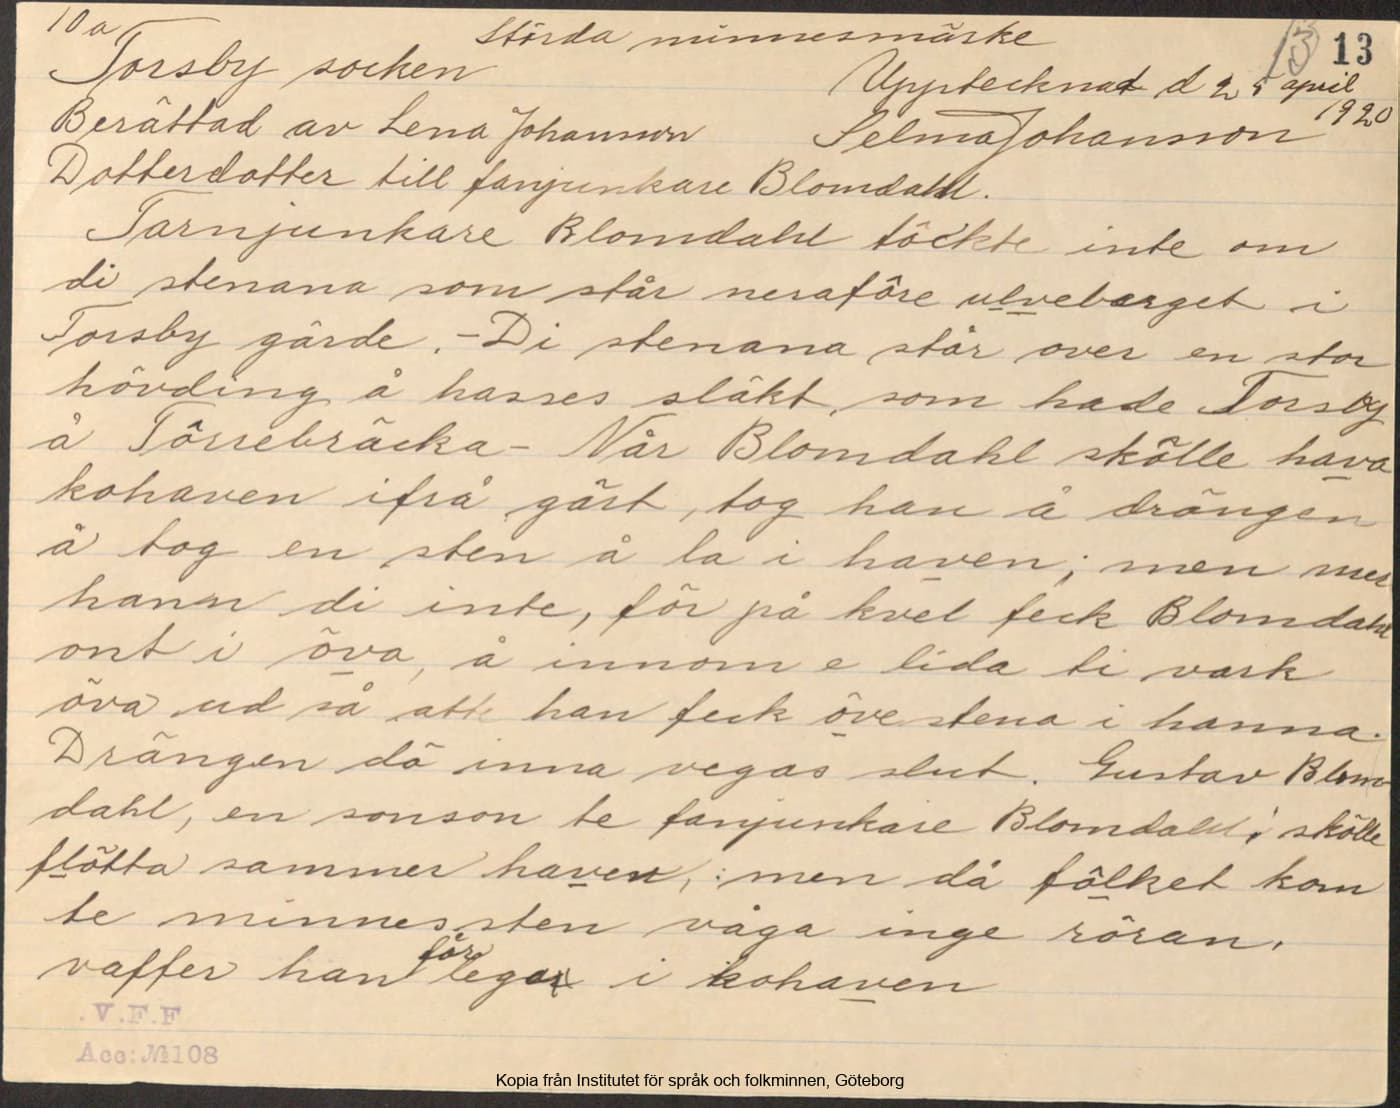 10 a
Störda minnesmärke
13
13
Torsby socken
Upptecknat d 25 april
1920
Berättad av Lena Johansson
Selma Johansson
Dotterdotter till fanjunkare Blomdahl.
Farnjunkare Blomdahl töckte inte om
di stenana som står neraföre ulveberget i
Torsby gärde. – Di stenana står over en stor
hövding å hasses släkt, som hade Torsby
å Törrebräcka – Når Blomdahl skölle hava
kohaven ifrå gärt, tog han å drängen
å tog en sten å la i haven; men mer
hann di inte, för på kvel feck Blomdahl
ont i öva, å innom e lida ti vark
öva ud så att han feck öve stena i hanna.
Drängen dö inna vegas slut. Gustav Blom-
dahl, en sonson te fanjunkare Blomdahl; skölle
flötta sammer haven; men då fölket kom
te minnessten våga inge röran,
vaffer han för legar i kohaven
.V.F.F
Acc: № 108
Kopia från Institutet för språk och folkminnen, Göteborg